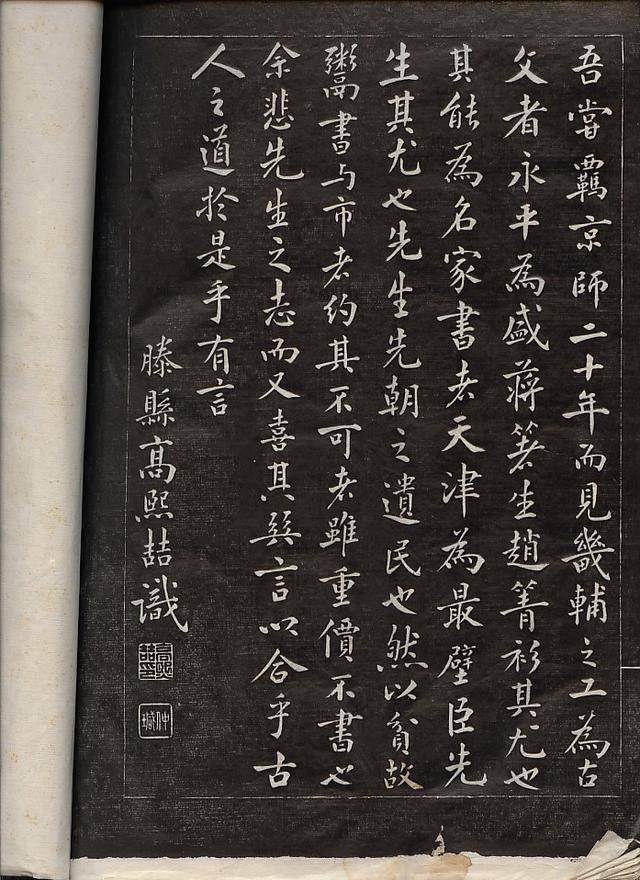 吾嘗羈京師二十年而見畿輔之工為古
文者永平為盛蔣箸生趙菁衫其尤也
其能為名家書者天津為最孼臣先
生其尤也先生先朝之遺民也然以貧故
鬻書與市者約其不可者雖重價不書也
余悲先生之志而又喜其巽言以合乎古
人之道於是乎有言
滕縣高熙喆識